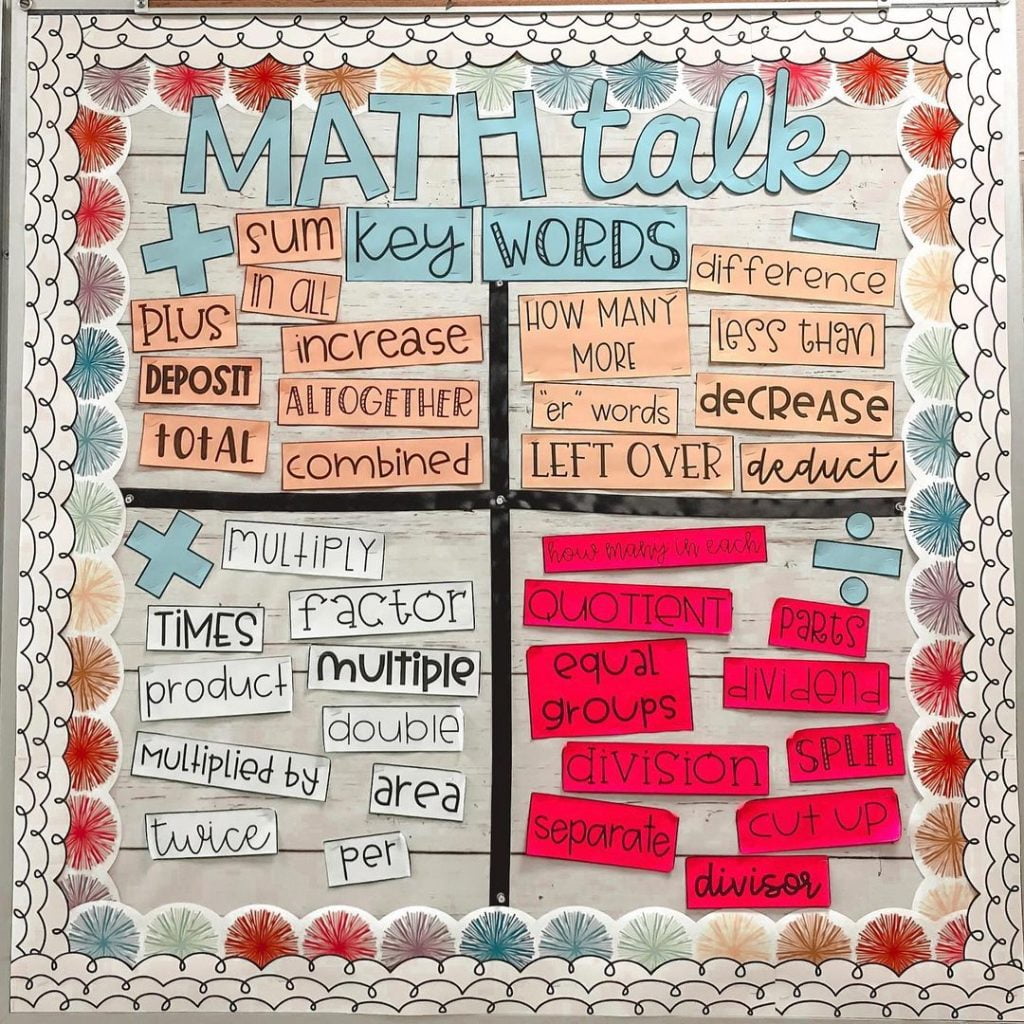 MATH talk
key WORDS
+
sum
in all
PLUS
increase
DEPOSIT
ALTOGETHER
total
combined
−
difference
HOW MANY
MORE
less than
"er" words
decrease
LEFT OVER
deduct
×
MULTIPLY
TIMES
factor
product
multiple
double
Multiplied by
area
twice
per
÷
how many in each
QUOTIENT
PARTS
equal
groups
dividend
division
SPLIT
separate
cut up
divisor